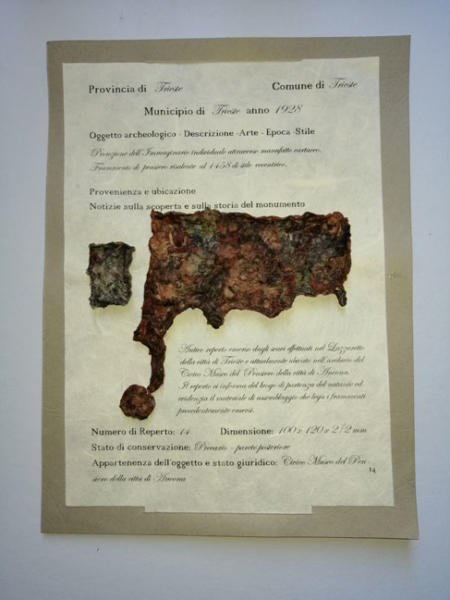 Provincia di Trieste Comune di Trieste
Municipio di Trieste anno 1928
Oggetto archeologico - Descrizione - Arte - Epoca - Stile
Proiezione dell'Immaginario individuale attraverso manufatto cartaceo.
Frammento di pensiero risalente al 1458 di stile eccentrico.
Provenienza e ubicazione
Notizie sulla scoperta e sulla storia del monumento
Antico reperto emerso dagli scavi effettuati nel Lazzaretto
della città di Trieste e attualmente ubicato nell'archivio del
Civico Museo del Pensiero della città di Ancona.
Il reperto ci informa del luogo di partenza del natante ed
evidenzia il materiale di assemblaggio che lega i frammenti
precedentemente emersi.
Numero di Reperto: 14 Dimensione: 100 x 120 x 2/2 mm
Stato di conservazione: Precario - posteriore
Appartenenza dell'oggetto e stato giuridico: Civico Museo del Pen-
siero della città di Ancona
14